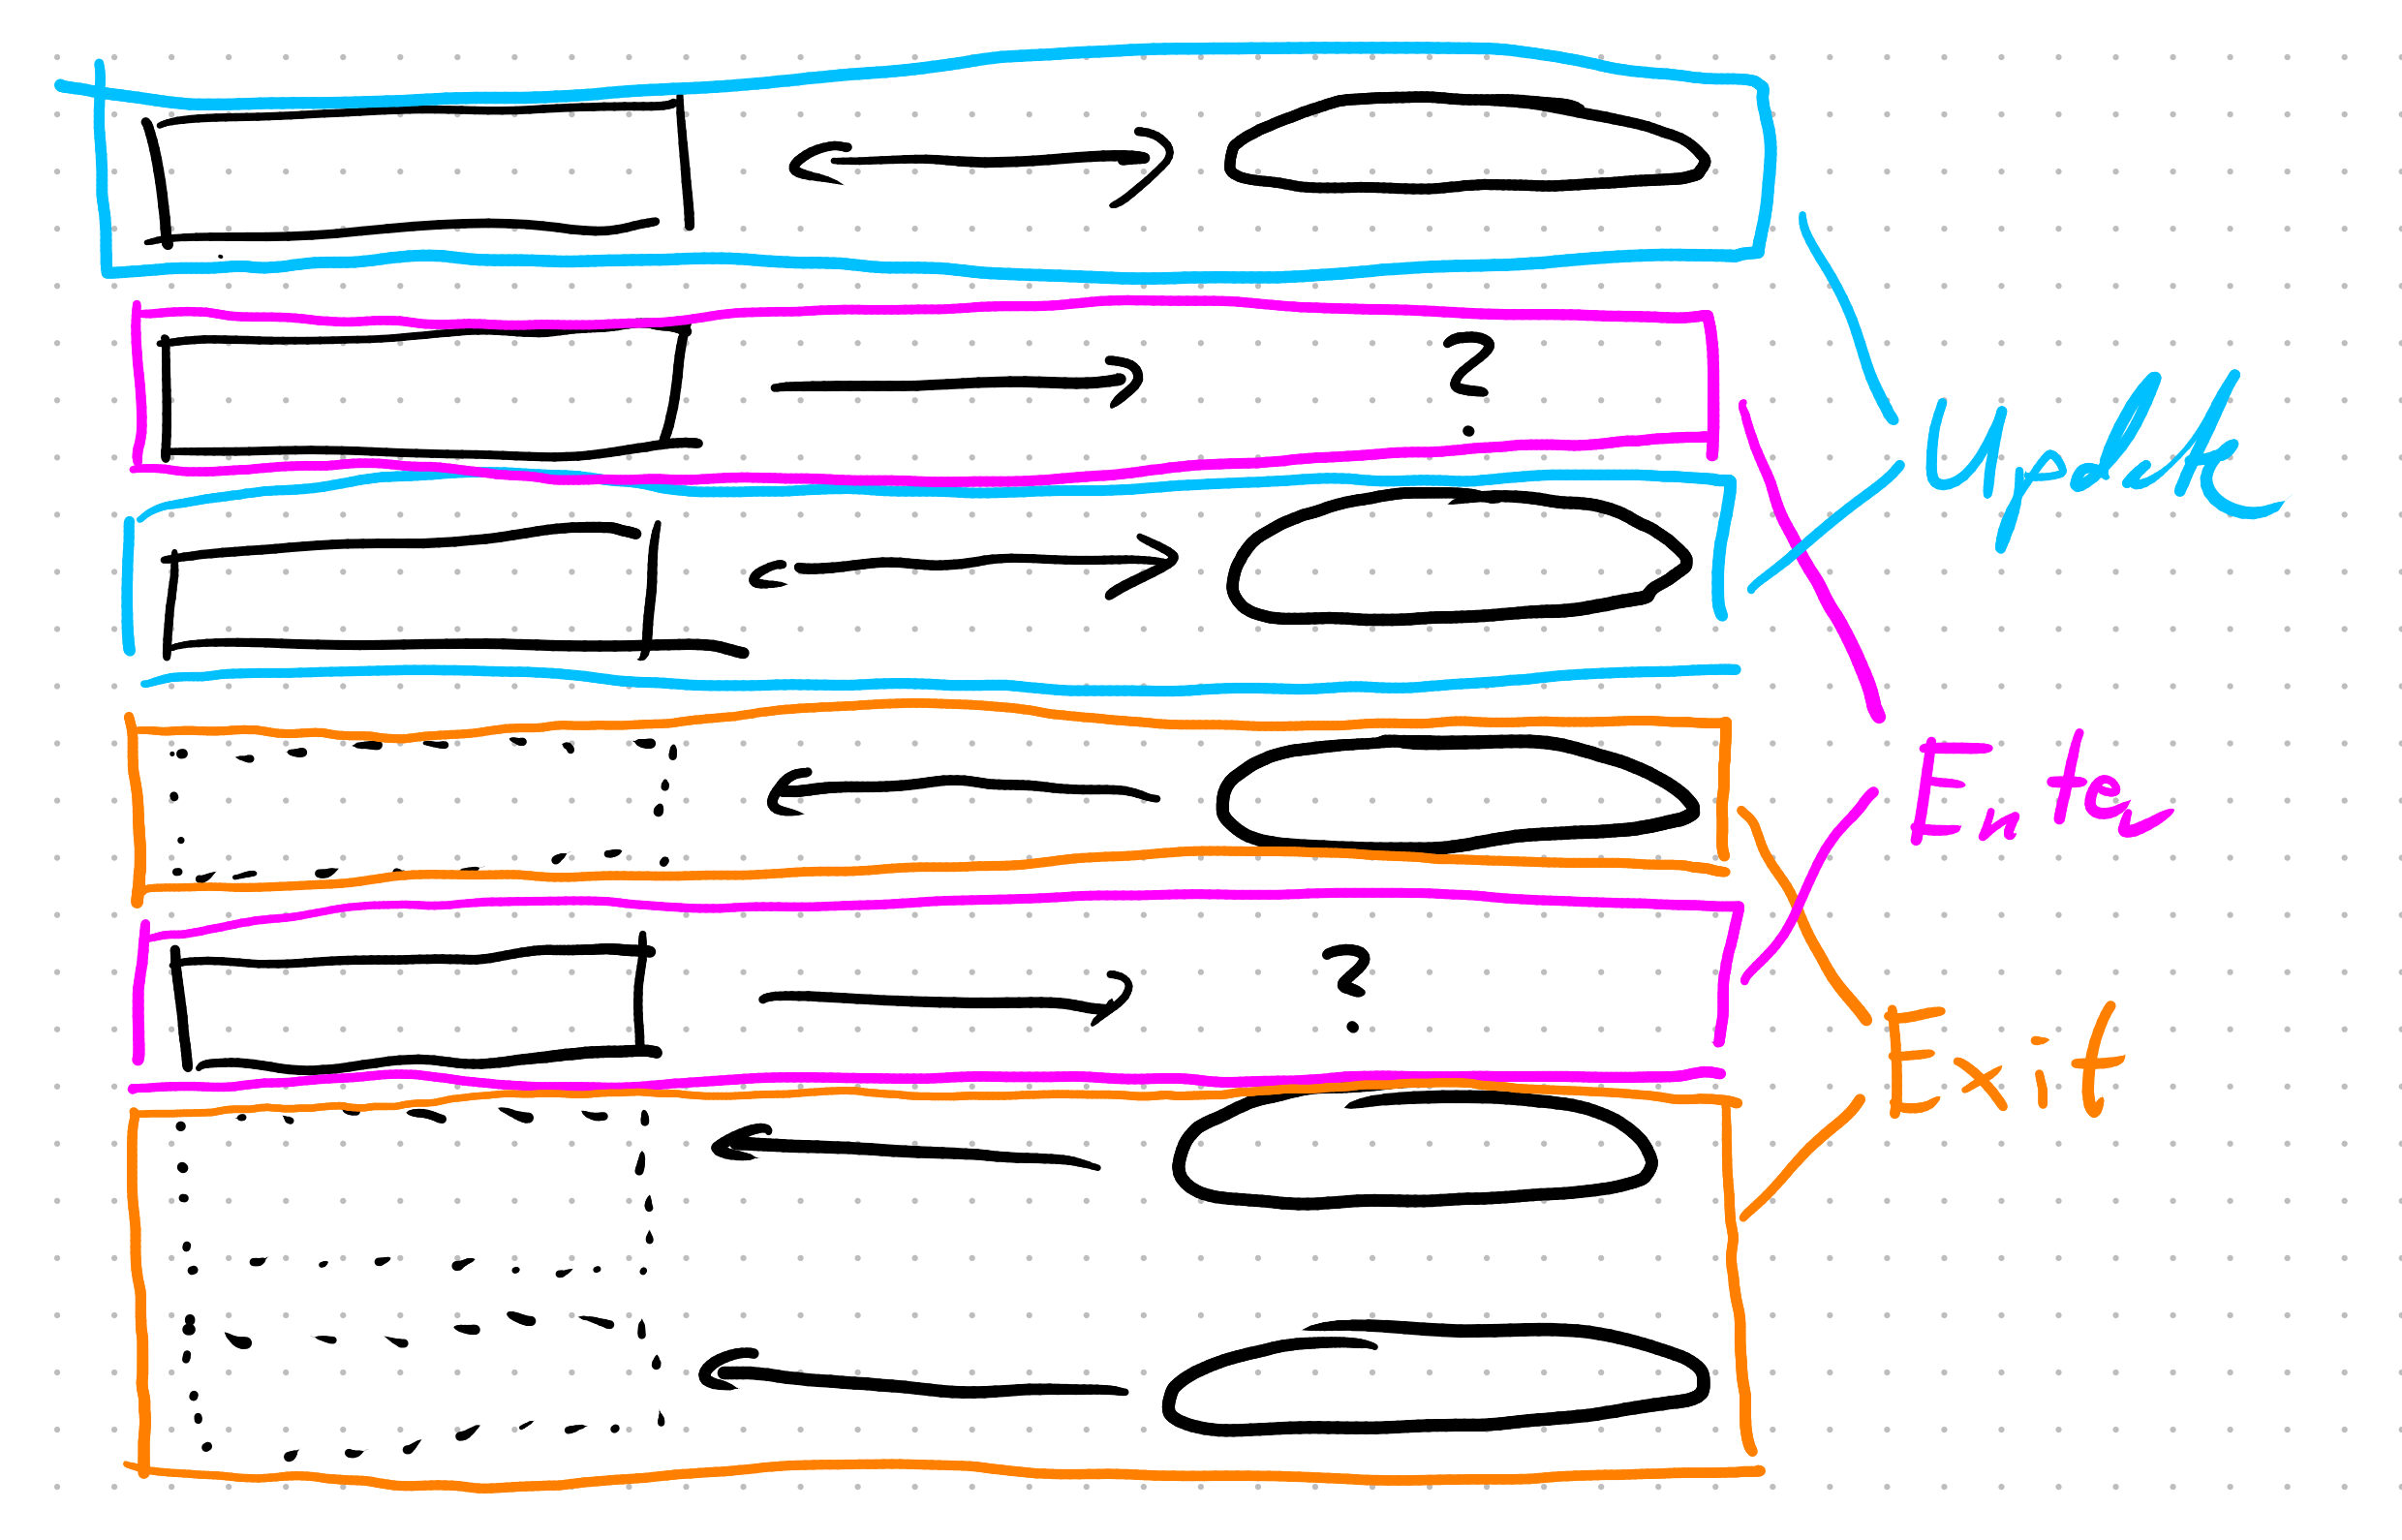 ?
Update
Enter
?
Exit